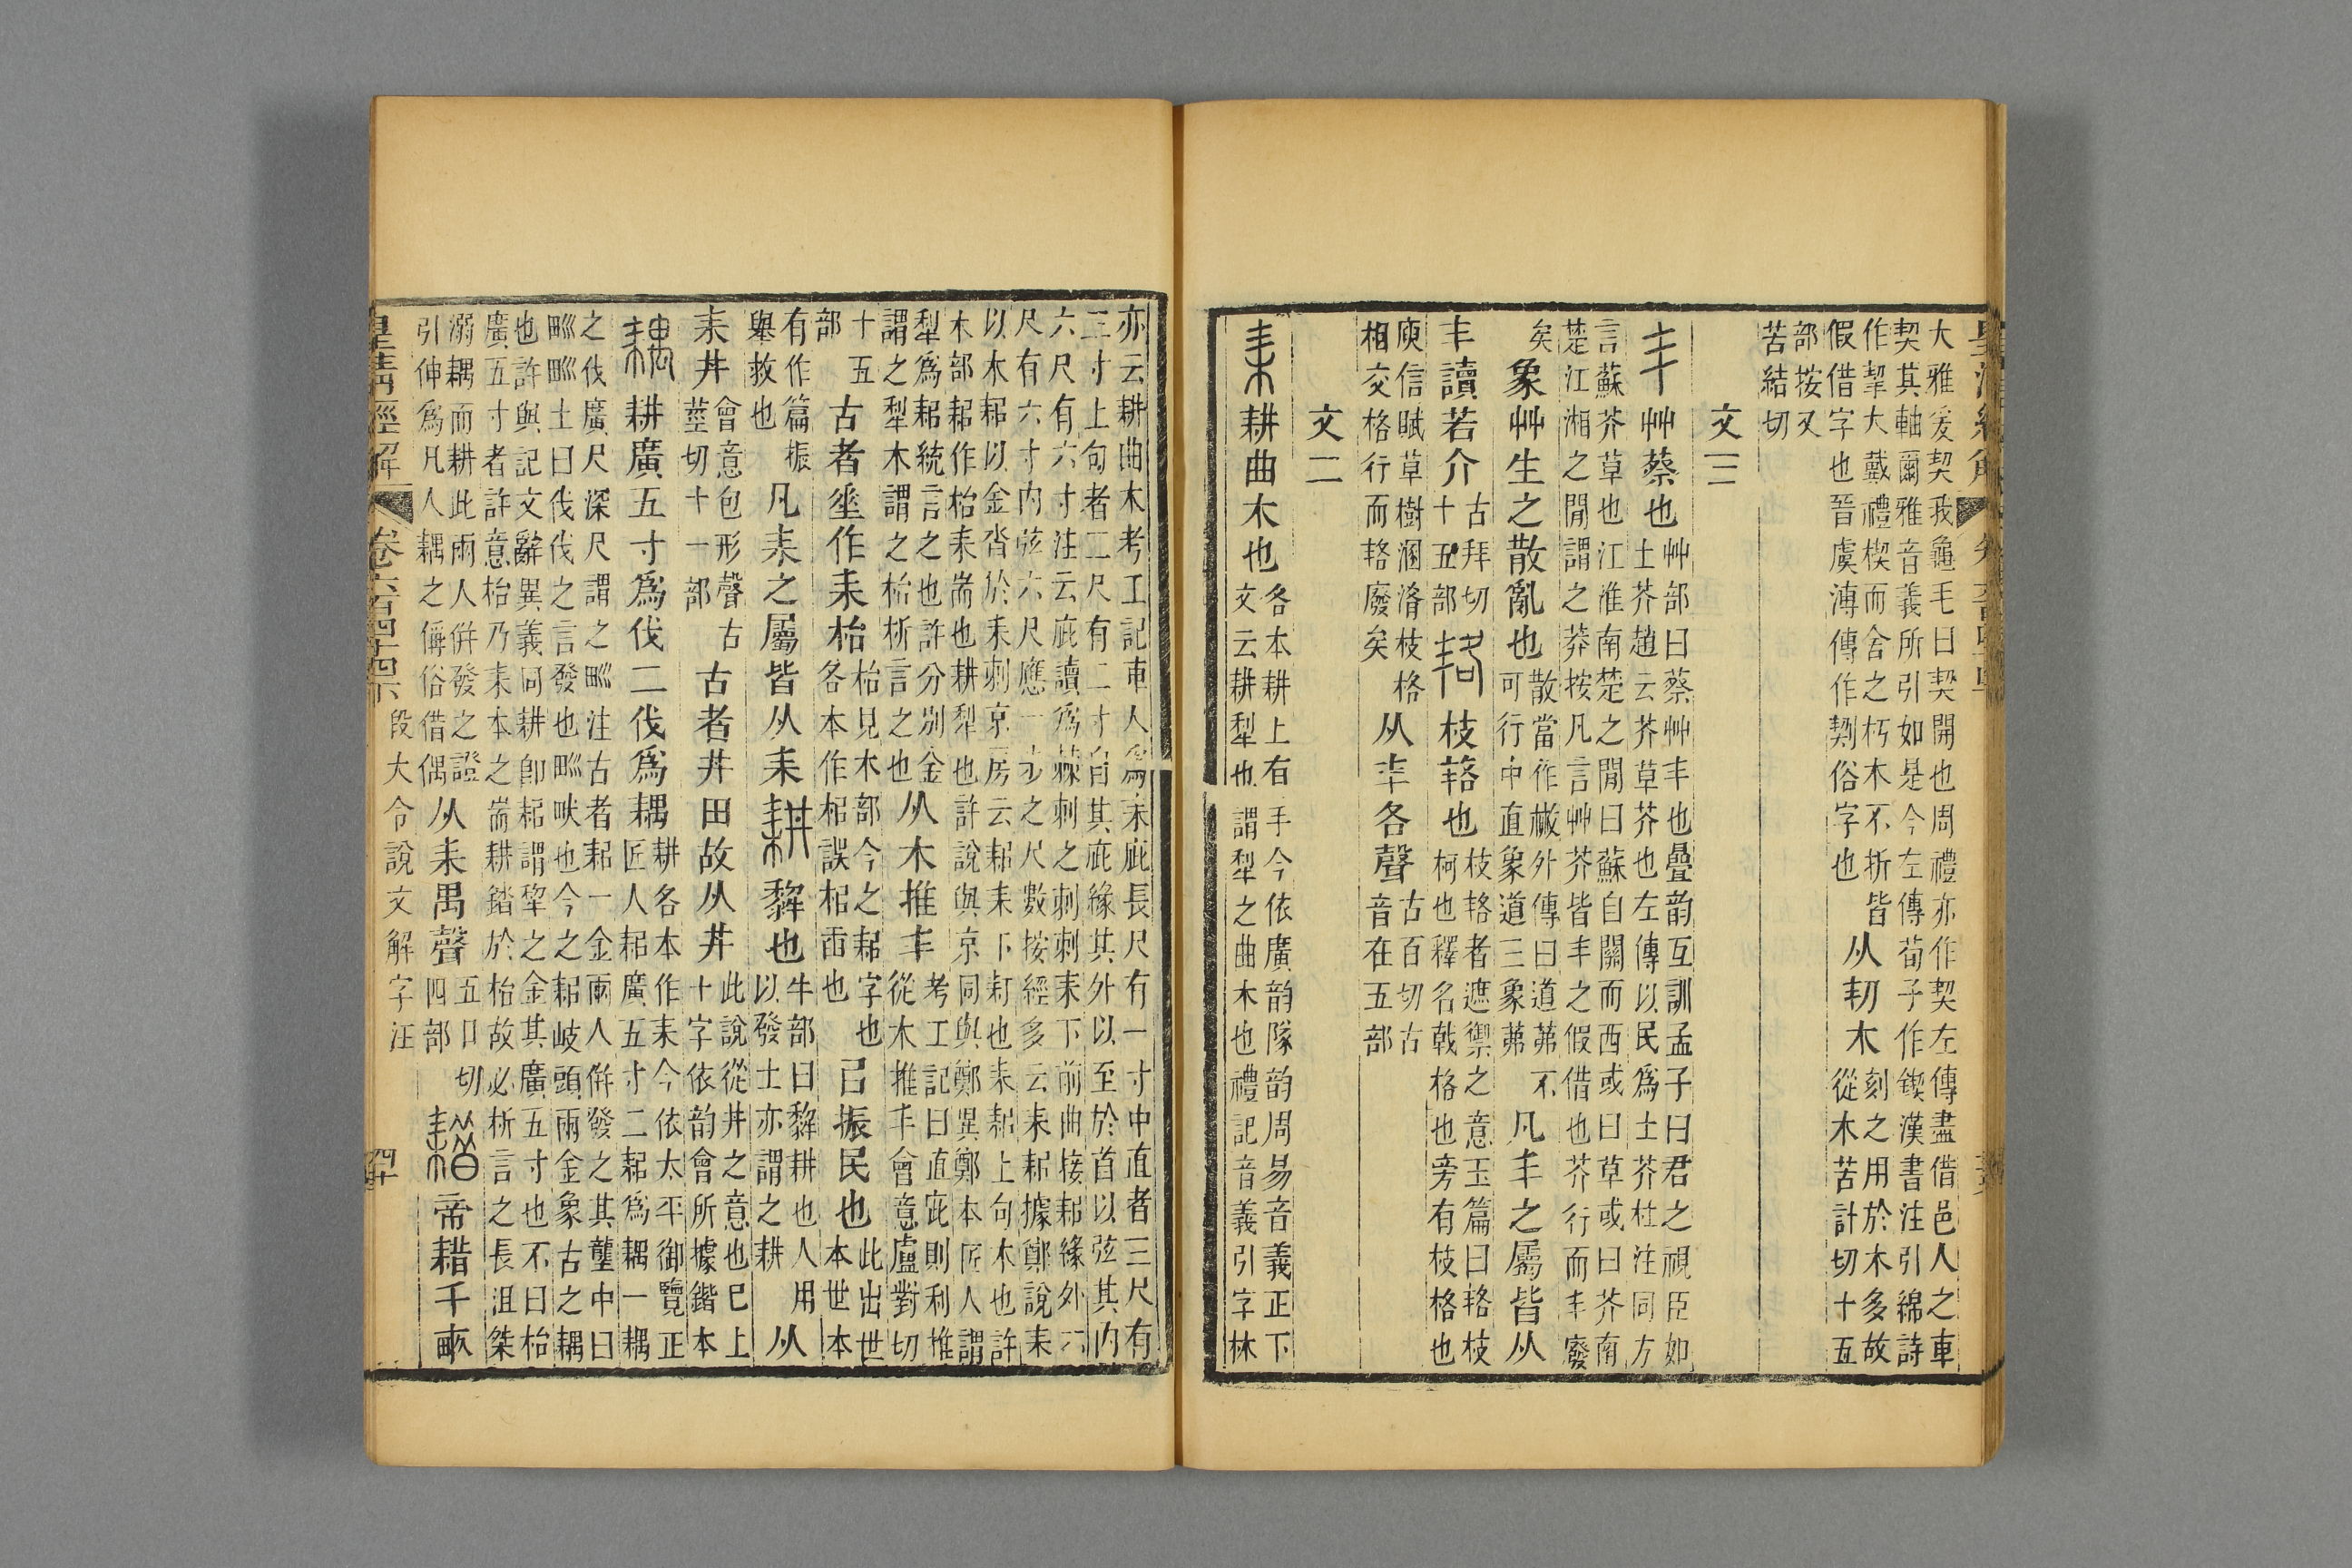 大雅爰契我龜毛曰契開也周禮亦作契左傳盡借邑人之車
契其軸爾雅音義所引如是今左傳荀子作鍥漢書注引綿詩
作挈大戴禮楔而舍之朽木不折皆
假借字也晉虞溥傳作㓶俗字也
从㓞木
刻之用於木多故
從木苦計切十五
部按又
苦結切
文三
丯艸蔡也
艸部曰蔡艸丯也曡韵互訓孟子曰君之視臣如
土芥趙云芥草芥也左傳以民爲土芥杜注同方
言蘇芥草也江淮南楚之閒曰蘇自關而西或曰草或曰芥南
楚江湘之閒謂之莽按凡言艸芥皆丯之假借也芥行而丯廢
矣
象艸生之散亂也
散當作㪔外傳曰道茀不
可行中直象道三象茀
凡丯之屬皆从
丯讀若介
古拜切
十五部
𦈪枝𦈪也
枝𦈪者遮禦之意玉篇曰𦈪枝
柯也釋名戟格也旁有枝格也
庾信賦草樹溷淆枝格
相交格行而𦈪廢矣
从丯各聲
古百切古
音在五部
文二
耒耕曲木也
各本耕上有手今依廣韵隊韵周易音義正下
文云耕犂也謂犂之曲木也禮記音義引字林
亦云耕曲木考工記車人爲耒庛長尺有一寸中直者三尺有
三寸上句者二尺有二寸自其庛緣其外以至於首以弦其內
六尺有六寸注云庛讀爲棘刺之刺刺耒下前曲接耜緣外六
尺有六寸內弦六尺應一步之尺數按經多云耒耜據鄭說耒
以木耜以金沓於耒刺京房云耜耒下耓也耒耜上句木也許
木部耜作枱耒耑也耕犂也許說與京同與鄭異鄭本匠人謂
犂爲耜統言之也許分別金
謂之犂木謂之枱析言之也
从木推丯
考工記曰直庛則利推
從木推丯會意盧對切
十五
部
古者𡍮作耒枱
枱見木部今之耜字也
各本作梠誤梠畱也
㠯振民也
此出世
本世本
有作篇振
舉救也
凡耒之屬皆从耒
耕犂也
牛部曰犂耕也人用
以發土亦謂之耕
从
耒井
會意包形聲古
莖切十一部
古者井田故从井
此說從井之意也巳上
十字依韵會所據鍇本
耦耕廣五寸爲伐二伐爲耦
耕各本作耒今依太平御覽正
匠人耜廣五寸二耜爲耦一耦
之伐廣尺深尺謂之𤰕注古者耜一金兩人併發之其壟中曰
𤰕𤰕土曰伐伐之言發也𤰕畎也今之耜岐頭兩金象古之耦
也許與記文辭異義同耕卽耜謂犂之金其廣五寸也不曰枱
廣五寸者許意枱乃耒本之耑耕鍇於枱故必析言之長沮桀
溺耦而耕此兩人併發之證
引伸爲凡人耦之偁俗借偶
从耒禺聲
五口切
四部
耤帝耤千畝
皇清經解
卷六百四十四下
段大令說文解字注
四十